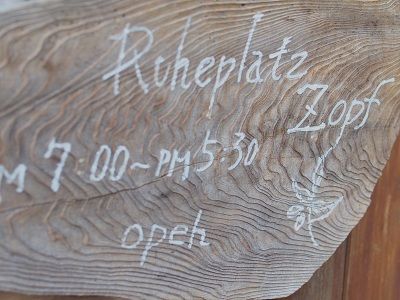 Ruheplatz
Zopf
M 7:00~PM5:30
open